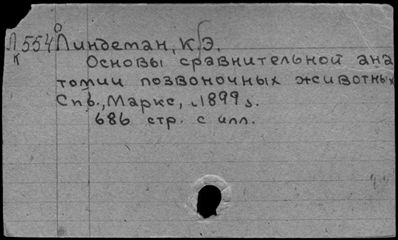 Л 554 Линдеман, К.Э.
к
Основы сравнительной ана
томии позвоночных животных
Спб., Маркс, 1899.
686 стр. с илл.